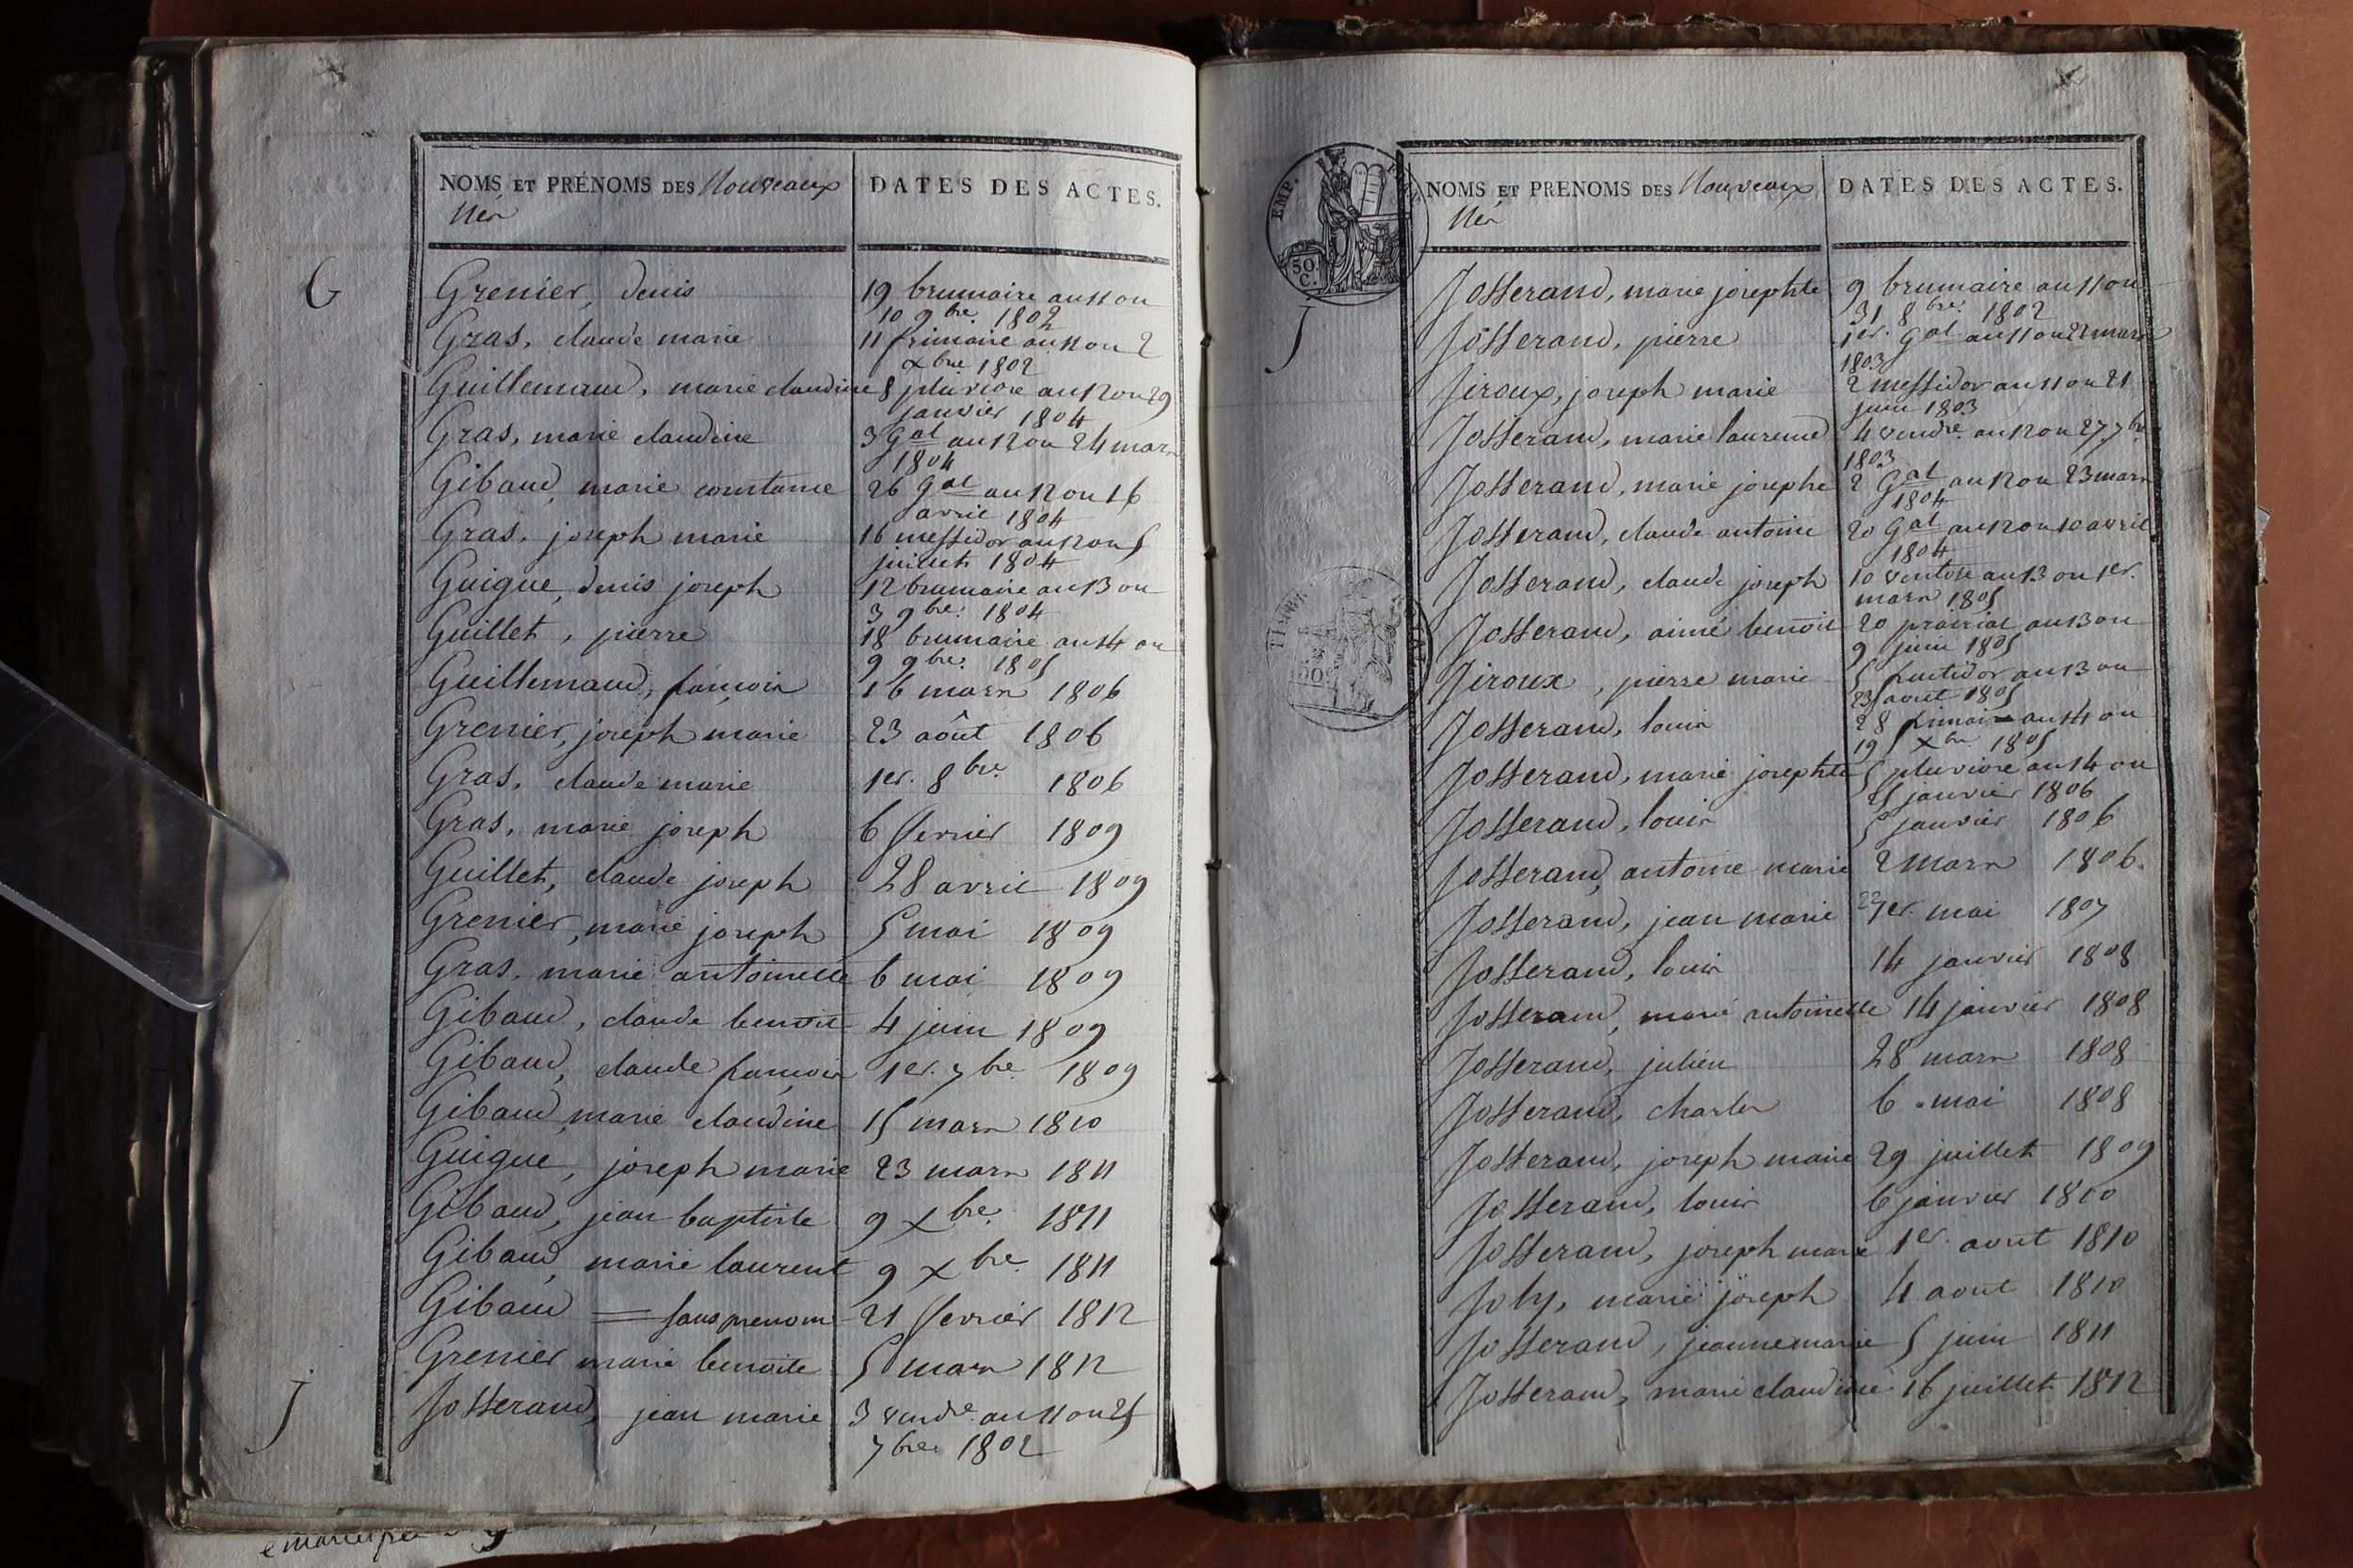 NOMS ET PRÉNOMS DES Nouveaux
Nés
DATES DES ACTES.
G
Grenier, denis 19 brumaire an 11 ou
10 9bre. 1802
Gras, claude marie 11 frimaire an 11 ou 2
xbre 1802
Guillemaud, marie claudine 8 pluviose an 12 ou 29
janvier 1804
Gras, marie claudine 3 Gal an 12 ou 24 mars
1804
Gibaud, marie constance 26 gal an 12 ou 16
avril 1804
Gras, joseph marie 16 messidor an 12 ou 5
juillet 1804
Guigue, denis joseph 12 brumaire an 13 ou
3 9bre. 1804
Guillet, pierre 18 brumaire an 14 ou
9 9bre. 1805
Guillemaud, françois 16 mars 1806
Grenier, joseph marie 23 août 1806
Gras, claude marie 1er. 8bre. 1806
Gras, marie joseph 6 fevrier 1809
Guillet, claude joseph 28 avril 1809
Grenier, marie joseph 5 mai 1809
Gras, marie antoinette 6 mai 1809
Gibaud, claude benoit 4 juin 1809
Gibaud, claude françois 1er. 7bre. 1809
Gibaud, marie claudine 15 mars 1810
Guigue, joseph marie 23 mars 1811
Gibaud, jean baptiste 9 xbre. 1811
Gibaud, marie laurent 9 xbre. 1811
Gibaud = sans prenom 21 fevrier 1812
Grenier marie benoite 5 mars 1812
J
Josserand, jean marie 3 vendre. an 11 ou 25
7bre. 1802
EMP.
50.
C.
NOMS ET PRENOMS DES Nouveaux
Nés
DATES DES ACTES.
J
Josserand, marie josephte 9 brumaire an 11 ou
31 8bre. 1802
Josserand, pierre 1er. gal an 11 ou 22 mars
1803
Jiroux, joseph marie 2 messidor an 11 ou 21
juin 1803
Josserand, marie laurence 4 vendre. an 12 ou 27 7bre
1803
Josserand, marie josephe 2 Gal an 12 ou 23 mars
1804
Josserand, claude antoine 20 Gal an 12 ou 10 avril
1804
Josserand, claude joseph 10 ventose an 13 ou 1er.
mars 1805
Josserand, aimé benoit 20 prairial an 13 ou
9 juin 1805
Jiroux, pierre marie 5 fructidor an 13 ou
23 aout 1805
Josserand, louis 28 frimaire an 14 ou
19 xbre 1805
Josserand, marie josephte 5 pluviose an 14 ou
25 janvier 1806
Josserand, louis 5 janvier 1806
Josserand, antoine marie 2 mars 1806.
Josserand, jean marie 1er. mai 1807
Josserand, louis 14 janvier 1808
Josserand, marie antoinette 14 janvier 1808
Josserand, julien 28 mars 1808
Josserand, charles 6 mai 1808
Josserand, joseph marie 29 juillet 1809
Josserand, louis 6 janvier 1810
Josserand, joseph marie 1er. aout 1810
Joly, marie joseph 4 aout 1810
Josserand, jeanne marie 5 juin 1811
Josserand, marie claudine 16 juillet 1812